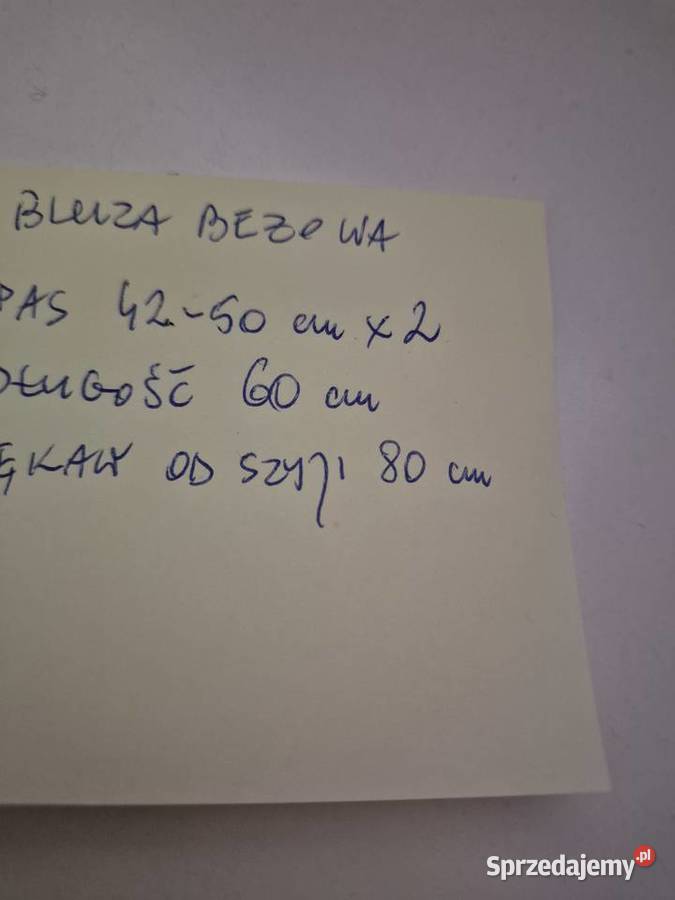 BLUZA BEŻOWA
PAS 42-50 cm x 2
DŁUGOŚĆ 60 cm
ĘKAW OD SZYJI 80 cm
Sprzedajemy.pl